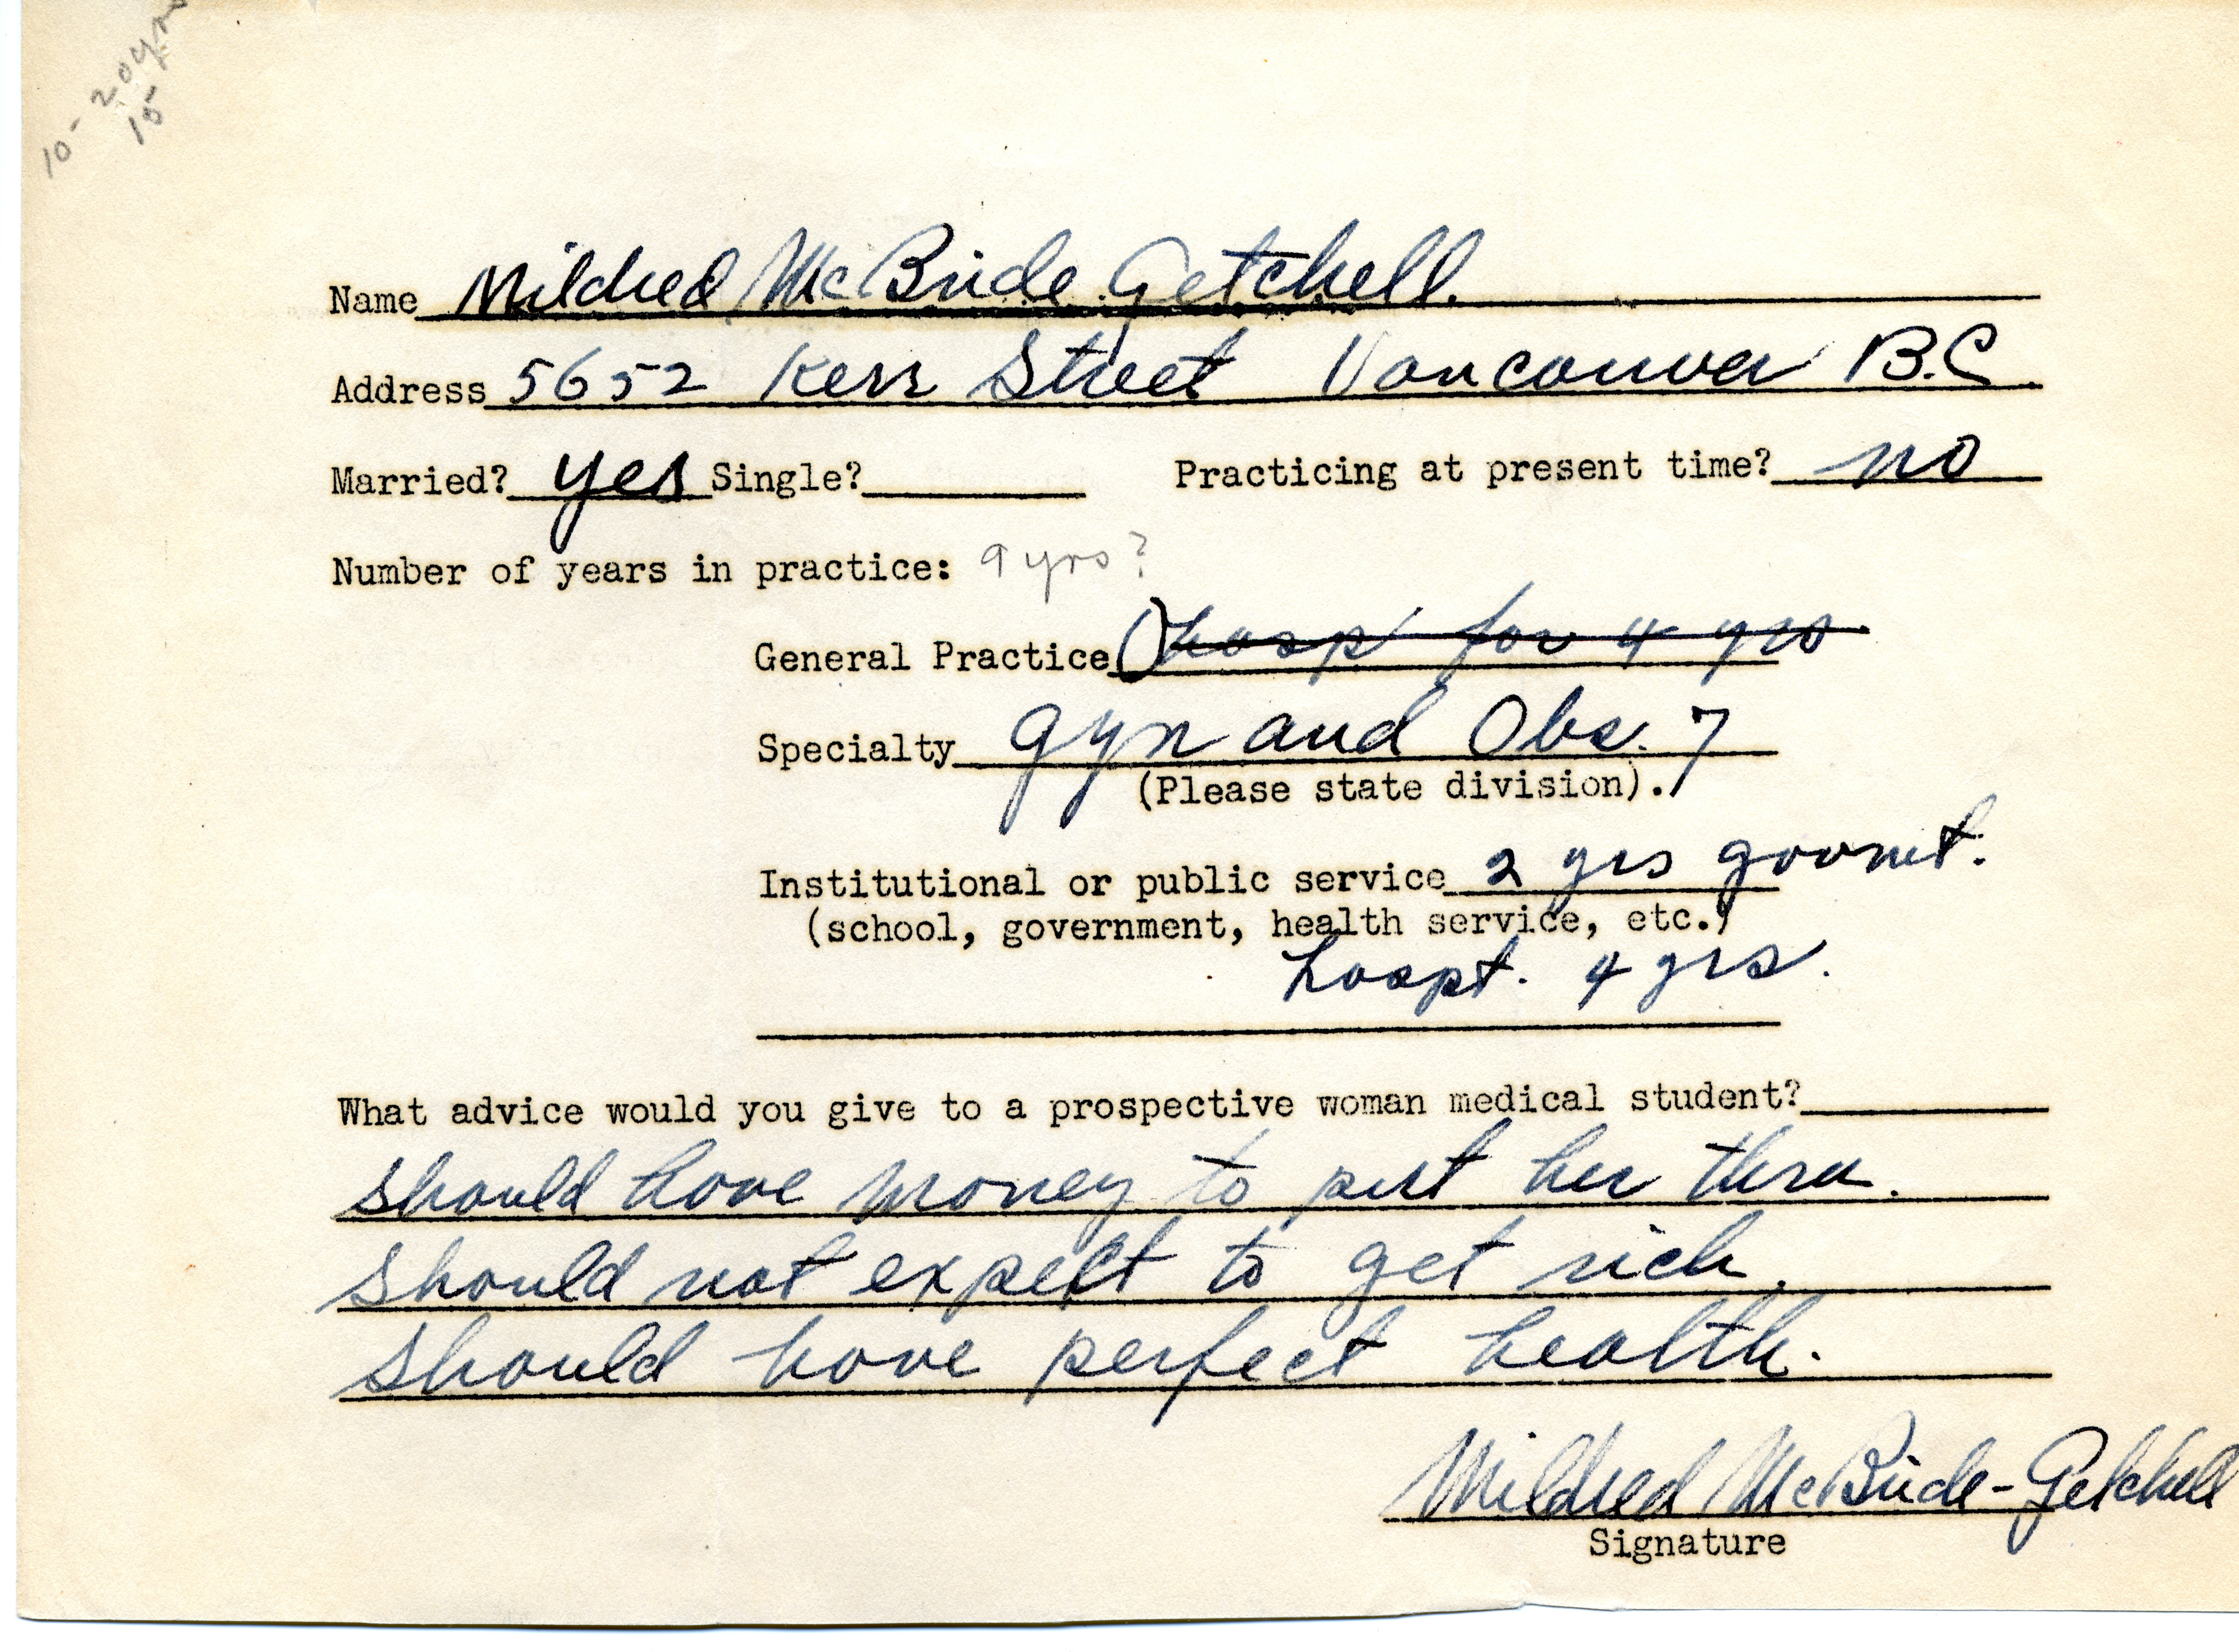 10-20 yrs
15
Name Mildred McBride Getchell.
Address 5652 Kerr Street Vancouver B.C.
Married? yes Single? Practicing at present time? no
Number of years in practice: 9 yrs?
General Practice () hosp for 4 yrs
Specialty gyn and Obs. 7
(Please state division).
Institutional or public service 2 yrs govmt.
(school, government, health service, etc.)
hospt. 4 yrs.
What advice would you give to a prospective woman medical student?
should have money to put her thru.
should not expect to get rich.
should have perfect health.
Mildred McBride-Getchell
Signature